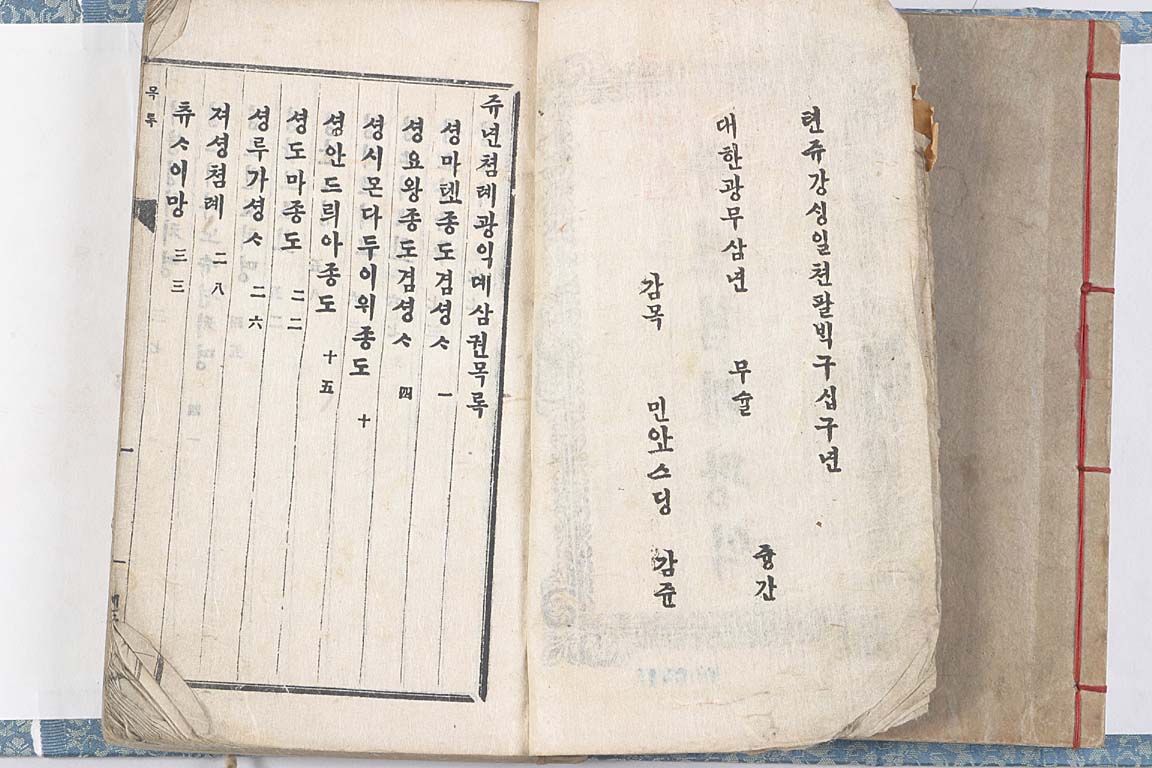 텬쥬강싱일천팔빅구십구년
대한광무삼년 무슐 즁간
감목 민아오스딩 감쥰
쥬년쳠례광익뎨삼권목록
셩마텐종도겸셩ᄉ 一
셩요왕종도겸셩ᄉ 四
셩시몬다두이위종도 十
셩안드릐아종도 十五
셩도마종도 二二
셩루가셩ᄉ 二六
져셩쳠례 二八
츄ᄉ이망 三三
목록
一